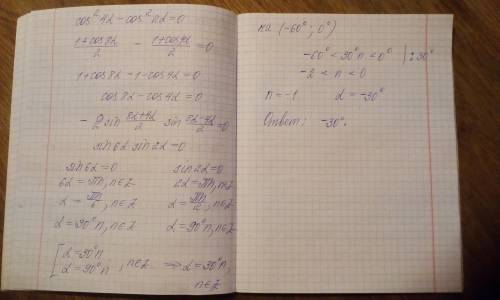 cos² 4α − cos² 2α = 0
(1+cos8α)/2 − (1+cos4α)/2 = 0
1+cos8α−1−cos4α=0
cos8α−cos4α=0
−2 sin (8α+4α)/2 sin (8α−4α)/2 = 0
sin6α sin2α=0
sin6α=0 sin2α=0
6α=πn, n∈Z 2α=πn, n∈Z
α=πn/6, n∈Z α=πn/2, n∈Z
α=30°n, n∈Z α=90°n, n∈Z
[α=30°n
α=90°n , n∈Z ⇒ α=30°n,
n∈Z
на (−60°; 0°)
−60° < 30°n < 0° | : 30°
−2 < n < 0
n=−1 α=−30°
Ответ: −30°.